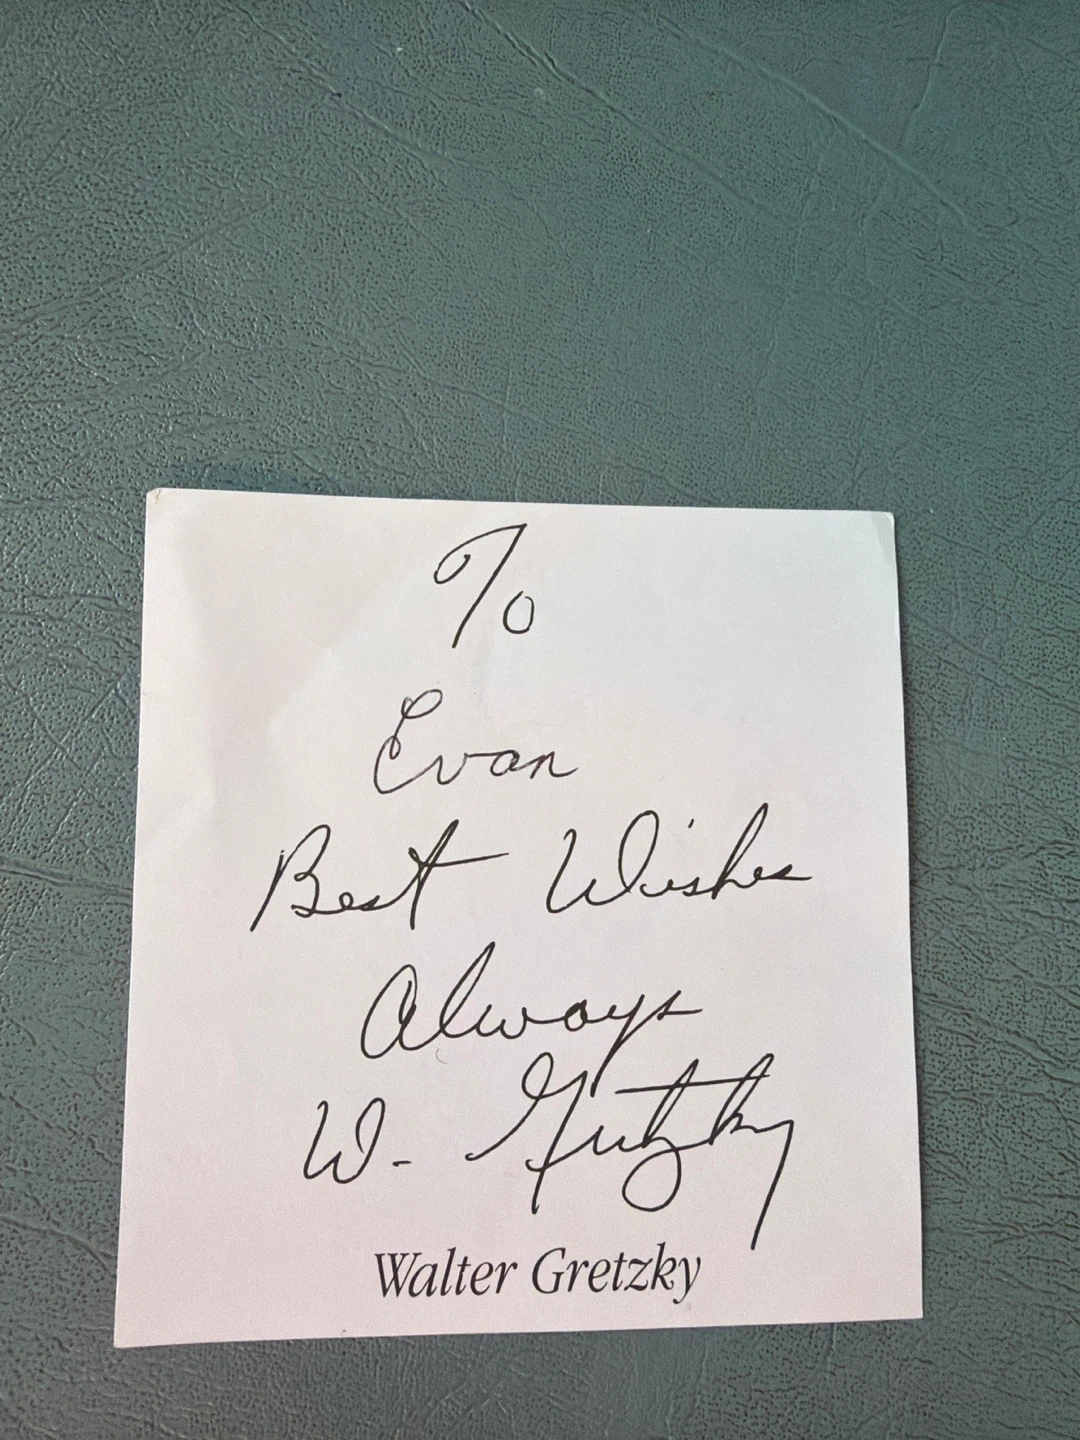 To
Evan
Best Wishes
Always
W. Gretzky
Walter Gretzky